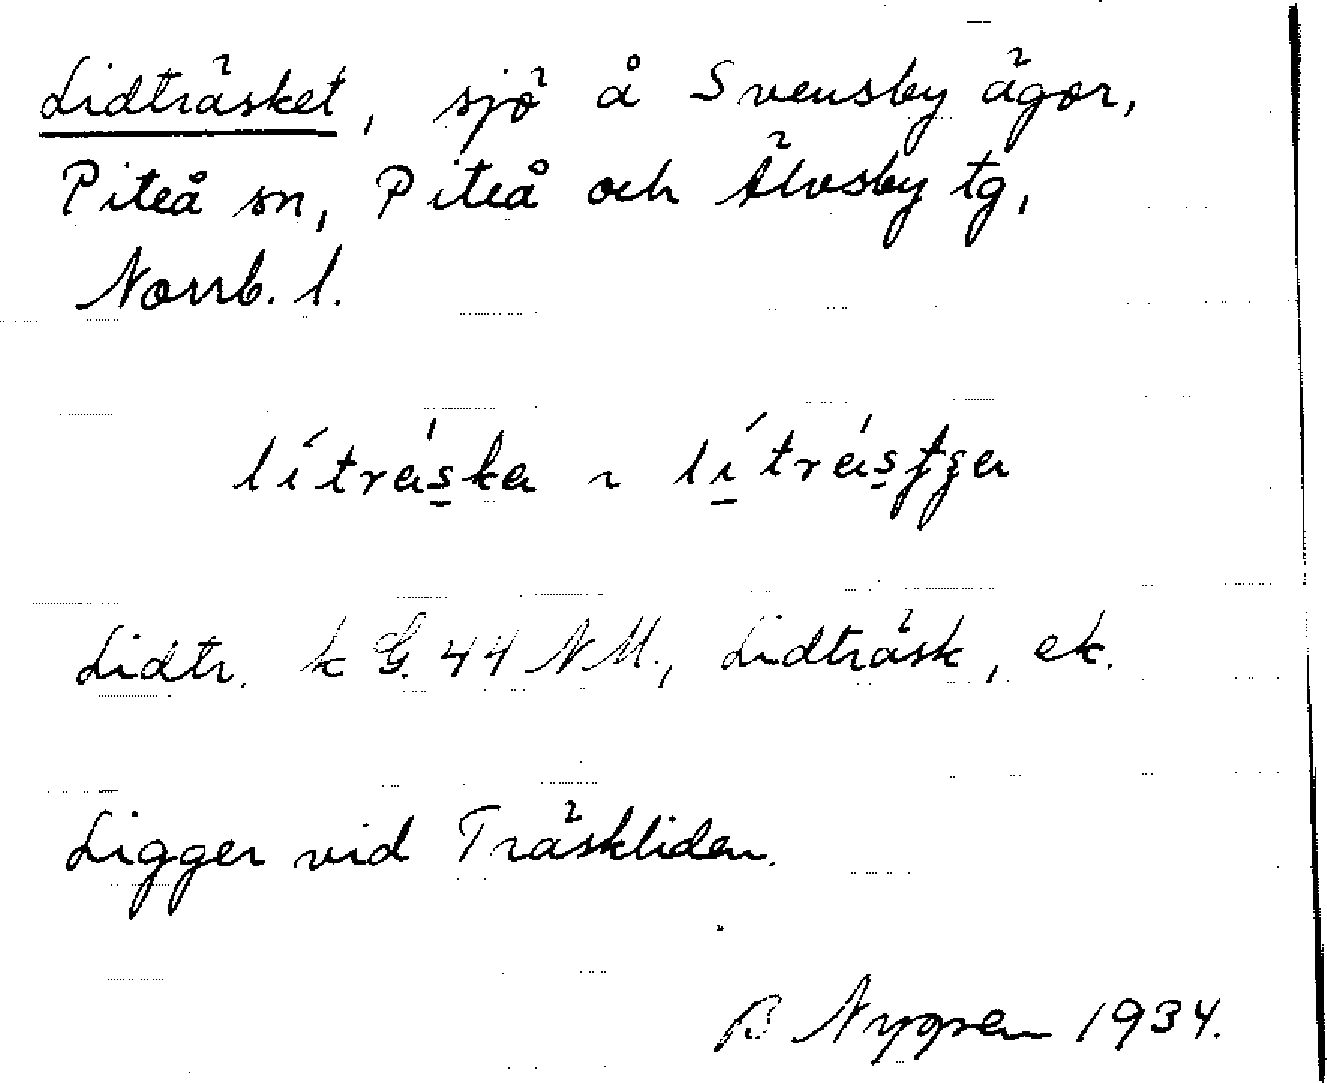 Lidträsket, sjö å Svensby ägor,
Piteå sn, Piteå och Älvsby tg,
Norrb. l.
Lidtr. k G. 44 NM., Lidträsk, ek.
Ligger vid Träskliden.
B Nygren 1934.